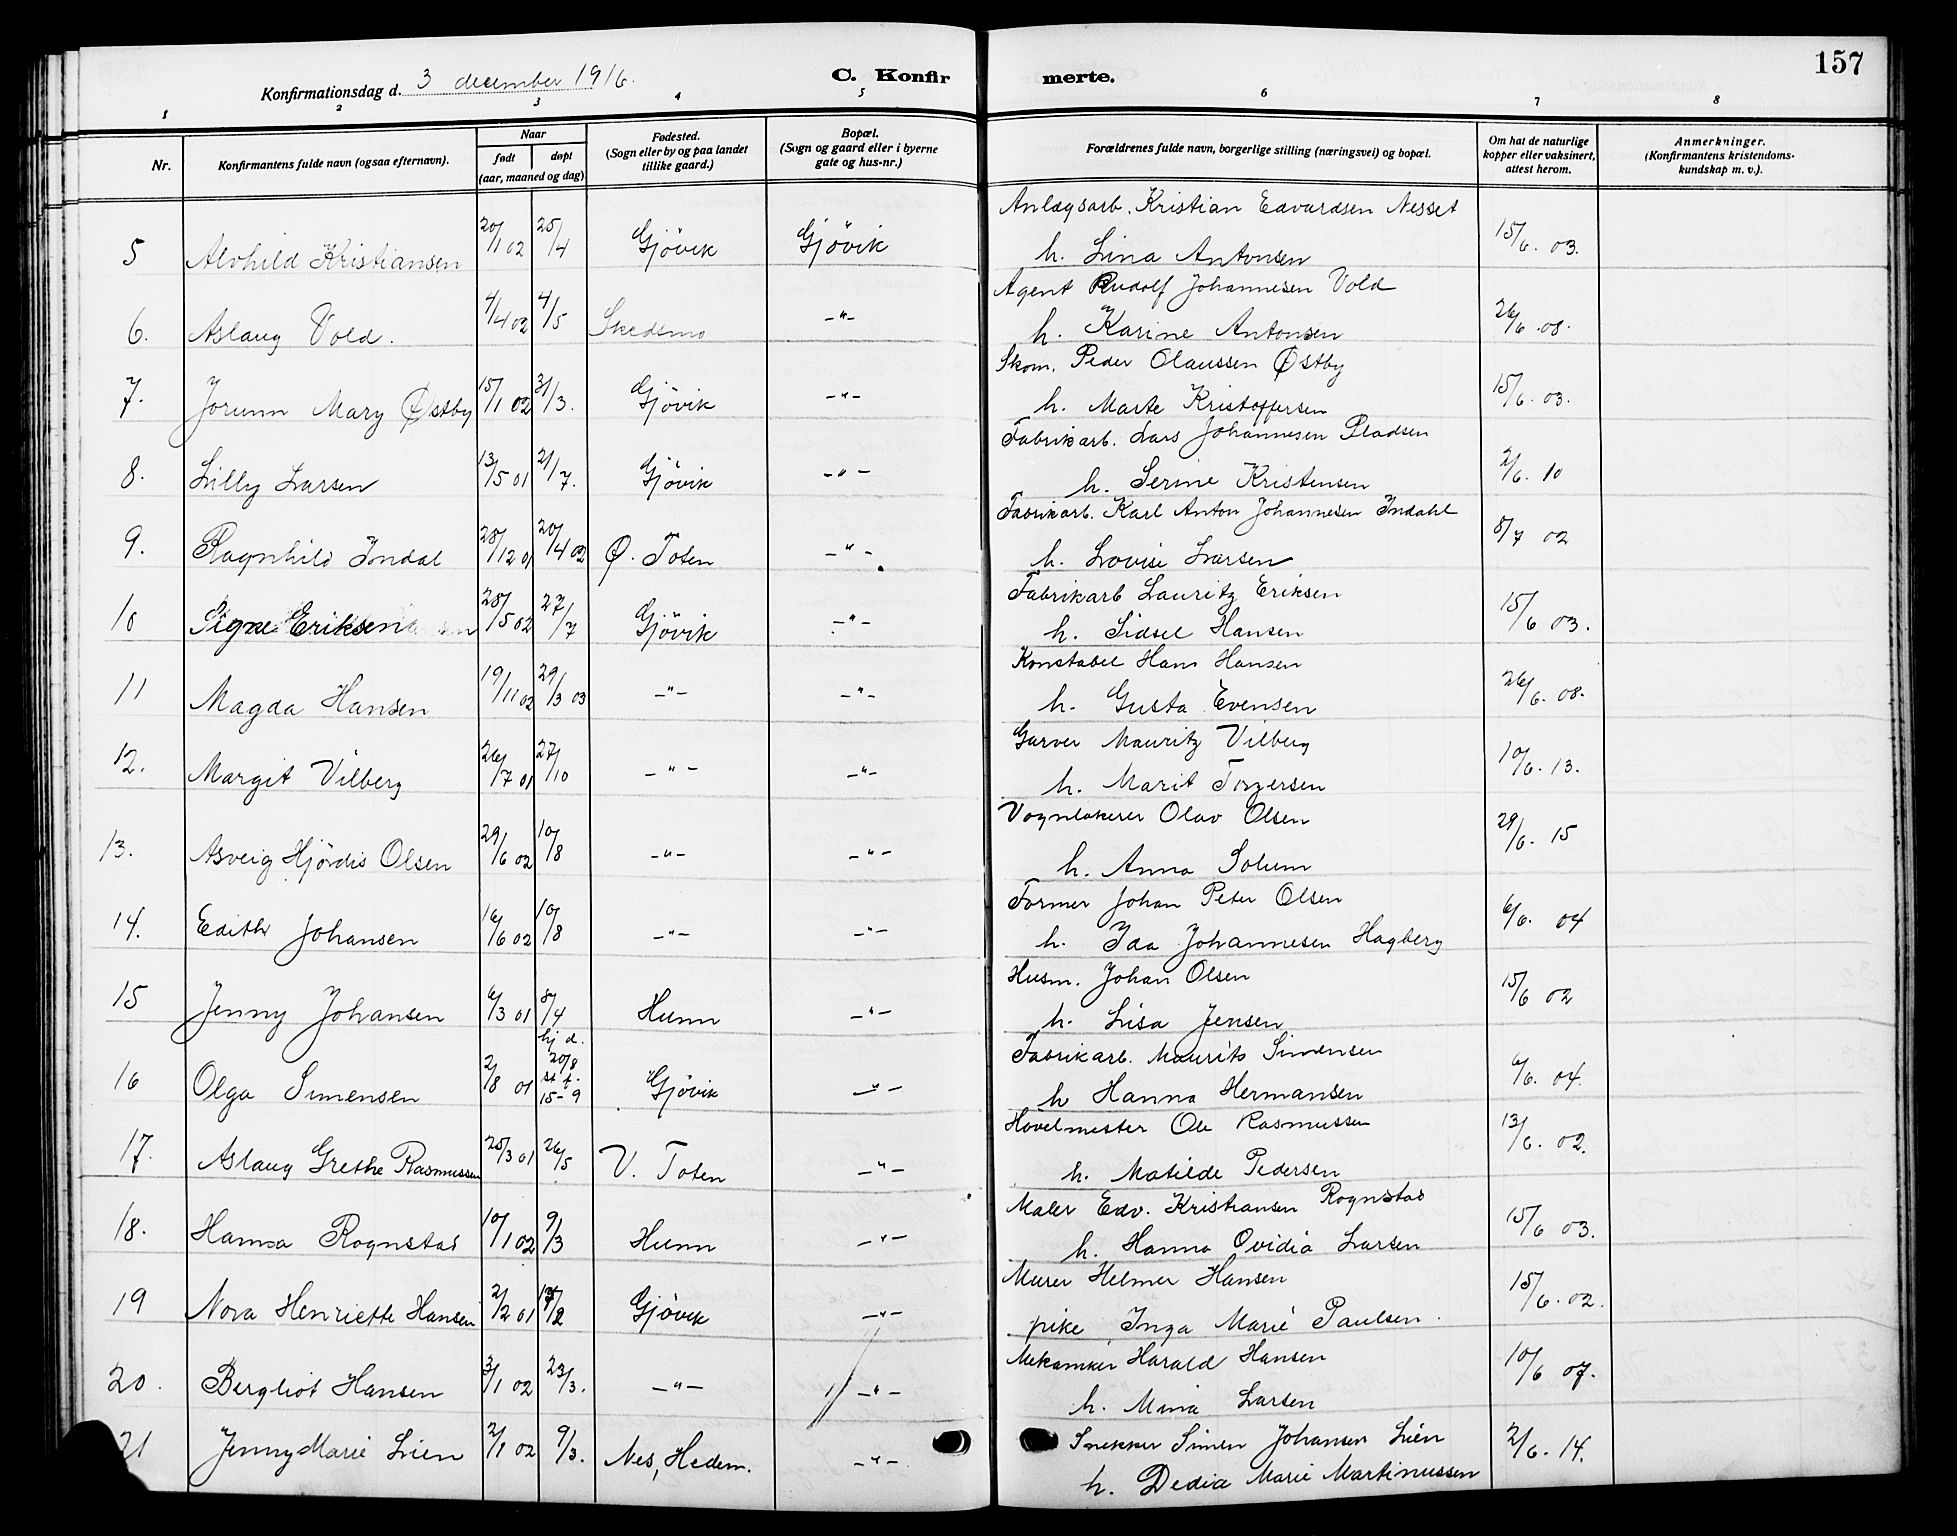 157
Konfirmationsdag d. 3 december 1916. C. Konfir merte.
1 2 3 4 5 6 7 8
Nr. Konfirmantens fulde navn (ogsaa efternavn). Naar født døpt (aar, maaned og dag) Fødested. (Sogn eller by og paa landet tillike gaard.) Bopæl. (Sogn og gaard eller i byerne gate og hus-nr.) Forældrenes fulde navn, borgerlige stilling (næringsvei) og bopæl. Om hat de naturlige kopper eller vaksinert, attest herom. Anmerkninger. (Konfirmantens kristendoms-kundskap m. v.).
Anlægsarb. Kristian Edvardsen Nesset
5 Alvhild Kristiansen 20/1 02 25/4 Gjövik Gjövik h. Lina Antonsen 15/6. 03.
Agent Rudolf Johannesen Vold
6. Aslaug Vold. 4/4 02 4/5 Skedsmo -"- h. Karine Antonsen 26/6. 08.
Skom. Peder Olaussen Østby
7. Jorunn Mary Østby 15/1 02 31/3. Gjövik -"- h. Marte Kristoffersen 15/6. 03.
Fabrikarb. Lars Johannesen Pladsen
8. Lilly Larsen 13/5 01 21/7. Gjövik -"- h. Serine Kristensen 2/6. 10
Fabrikarb. Karl Anton Johannesen Indahl
9. Ragnhild Indal 28/12 01 20/4 02 Ø. Toten -"- h. Lovise Larsen 8/7 02
Fabrikarb Lauritz Eriksen
10 Signe Eriksen 28/5 02 27/7 Gjövik -"- h. Sidsel Hansen 15/6 03.
Konstabel Hans Hansen
11 Magda Hansen 19/11 02 29/3 03 -"- -"- h. Gusta Evensen 26/6. 08.
Garver Mauritz Vilberg
12. Margit Vilberg 26/7 01 27/10 -"- -"- h. Marit Torgersen 10/6. 13.
Vognlakerer Olav Olsen
13. Asveig Hjördis Olsen 29/6 02 10/8 -"- -"- h. Anna Solum 29/6. 15
Former Johan Peter Olsen
14. Edith Johansen 16/6 02 10/8 -"- -"- h. Ida Johannesen Hagberg 6/6. 04
Husm. Johan Olsen
15 Jenny Johansen 6/3 01 8/4 Hunn -"- h. Lisa Jensen 15/6 02
Fabrikarb. Maurits Simensen
16 Olga Simensen 2/8 01 hj d. 20/8 st f. 15-9 Gjövik -"- h Hanna Hermansen 6/6. 04.
Hövelmester Ole Rasmussen
17. Aslaug Grethe Rasmussen 25/3 01 26/5 V. Toten -"- h. Matilde Pedersen 13/6. 02.
Maler Edv. Kristiansen Rognstad
18. Hanna Rognstad 10/1 02 9/3 Hunn -"- h. Hanna Ovidia Larsen 15/6 03.
Murer Helmer Hansen
19 Nora Henriette Hansen 2/2 01 /2 Gjövik -"- pike Inga Marie Paulsen 15/6. 02.
Mekaniker Harald Hansen
20. Bergliot Hansen 3/1 02 23/3. -"- -"- h. Mina Larsen 10/6 07.
Snekker Simen Johansen Lien
21 Jenny Marie Lien 2/1 02 9/3. Nes, Hedem. -"- h. Dedia Marie Martinussen 2/6. 14.